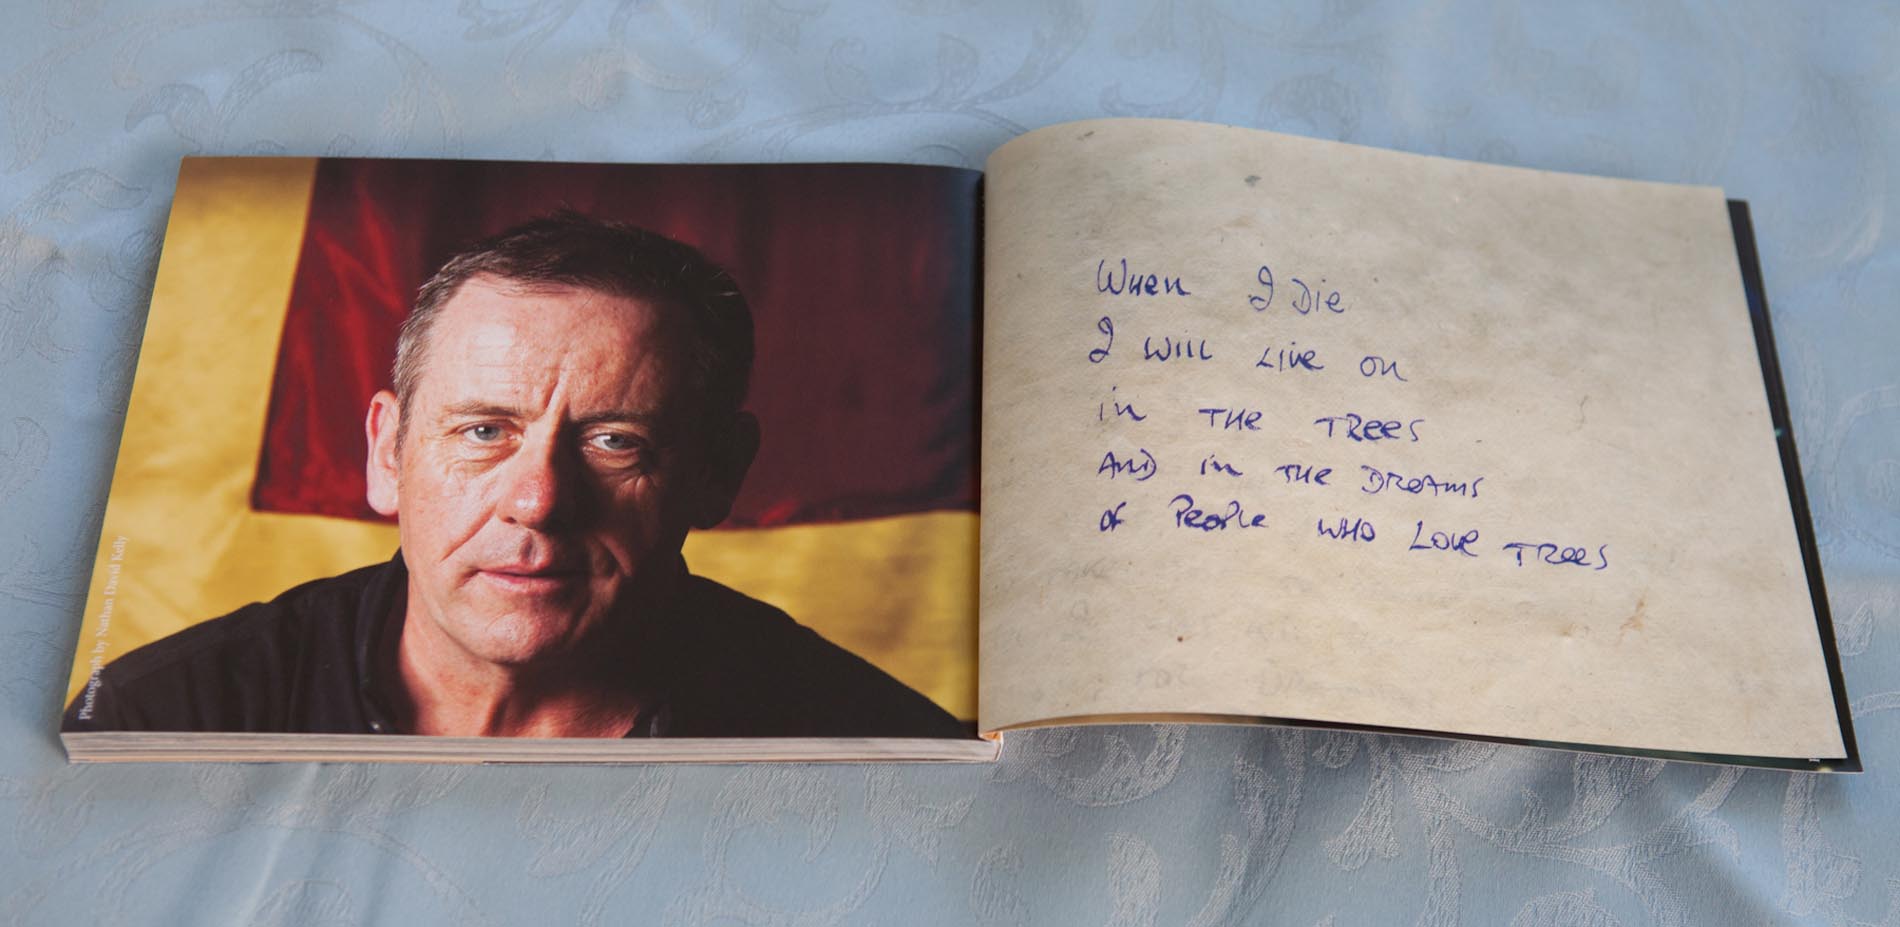 Photograph by Nathan David Kelly
WHen I Die
I will Live on
in THe TRees
AnD in THe DReAms
oF PeoPle WHO Love TRees